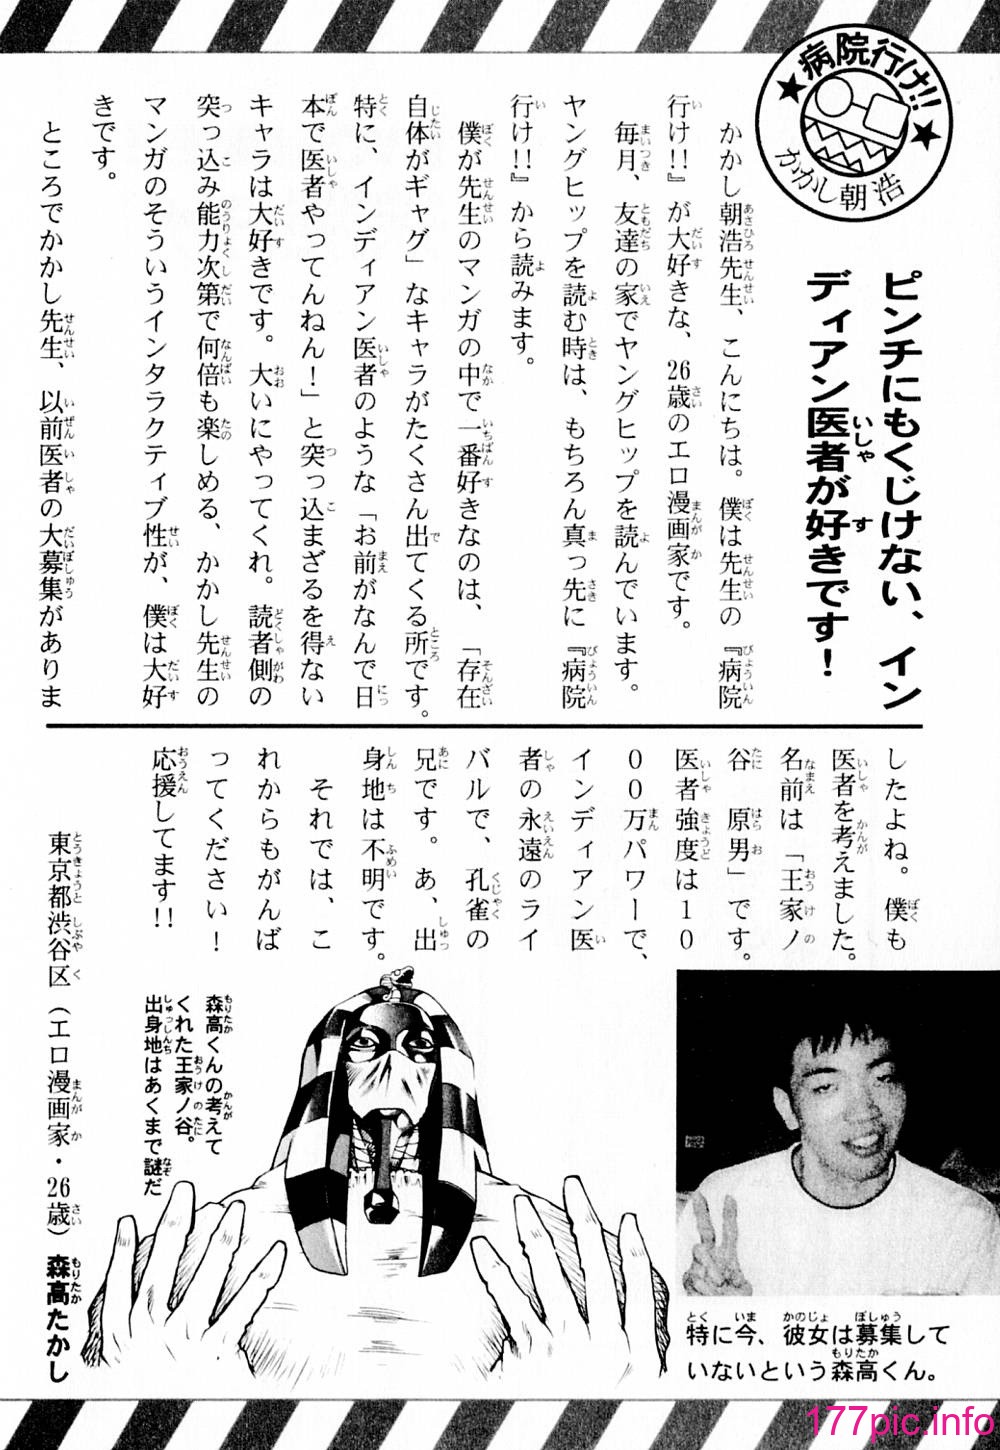 病院行け!!
かかし朝浩
ピンチにもくじけない、イン
ディアン医者が好きです!
かかし朝浩先生、こんにちは。僕は先生の『病院
行け!!』が大好きな、26歳のエロ漫画家です。
毎月、友達の家でヤングヒップを読んでいます。
ヤングヒップを読む時は、もちろん真っ先に『病院
行け!!』から読みます。
僕が先生のマンガの中で一番好きなのは、「存在
自体がギャグ」なキャラがたくさん出てくる所です。
特に、インディアン医者のような「お前がなんで日
本で医者やってんねん!」と突っ込まざるを得ない
キャラは大好きです。大いにやってくれ。読者側の
突っ込み能力次第で何倍も楽しめる、かかし先生の
マンガのそういうインタラクティブ性が、僕は大好
きです。
ところでかかし先生、以前医者の大募集がありま
したよね。僕も
医者を考えました。
名前は「王家ノ
谷 原男」です。
医者強度は10
00万パワーで、
インディアン医
者の永遠のライ
バルで、孔雀の
兄です。あ、出
身地は不明です。
それでは、こ
れからもがんば
ってください!
応援してます!!
東京都渋谷区(エロ漫画家・26歳)森高たかし
森高くんの考えて
くれた王家ノ谷。
出身地はあくまで謎だ
特に今、彼女は募集して
いないという森高くん。
177pic.info